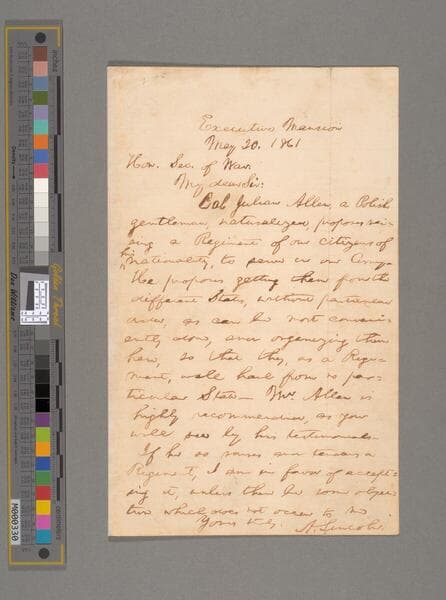 Executive Mansion
May 20. 1861
Hon. Sec. of War.
My dear Sir:
Col. Julian Allen, a Polish
gentleman, naturalized, proposes rai-
sing a Regiment of our citizens of
his
nationality, to serve in our Army.
He proposes getting them from the
different States, without particular
order, as can be most conveni-
ently done, and organizing them
here, so that they, as a Regi-
ment, will hail from no par-
ticular State. Mr. Allen is
highly recommended, as you
will see by his testimonials.
If he so raises and tenders a
Regiment, I am in favor of accept-
ing it, unless there be some objec-
tion which does not occur to me.
Yours &c. A. Lincoln.
inches
centimeters
M000330